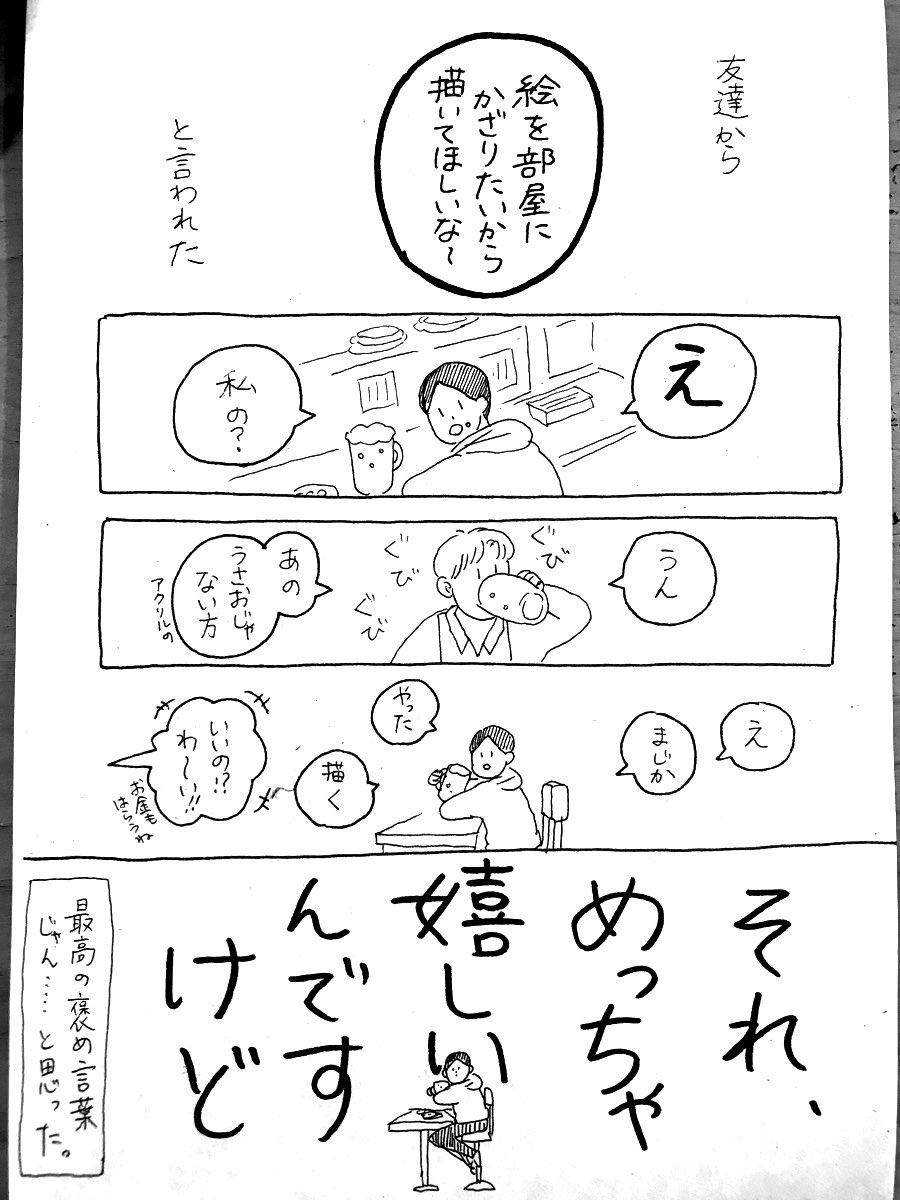 友達から
絵を部屋に
かざりたいから
描いてほしいな〜
と言われた
え
私の?
うん
ぐび
ぐび
ぐび
あの
うさおじゃ
ない方
アクリルの
え
まじか
やった
描く
いいの!?
わ〜い!!
お金も
はらうね
それ、
めっちゃ
嬉しい
んです
けど
最高の褒め言葉
じゃん……と思った。